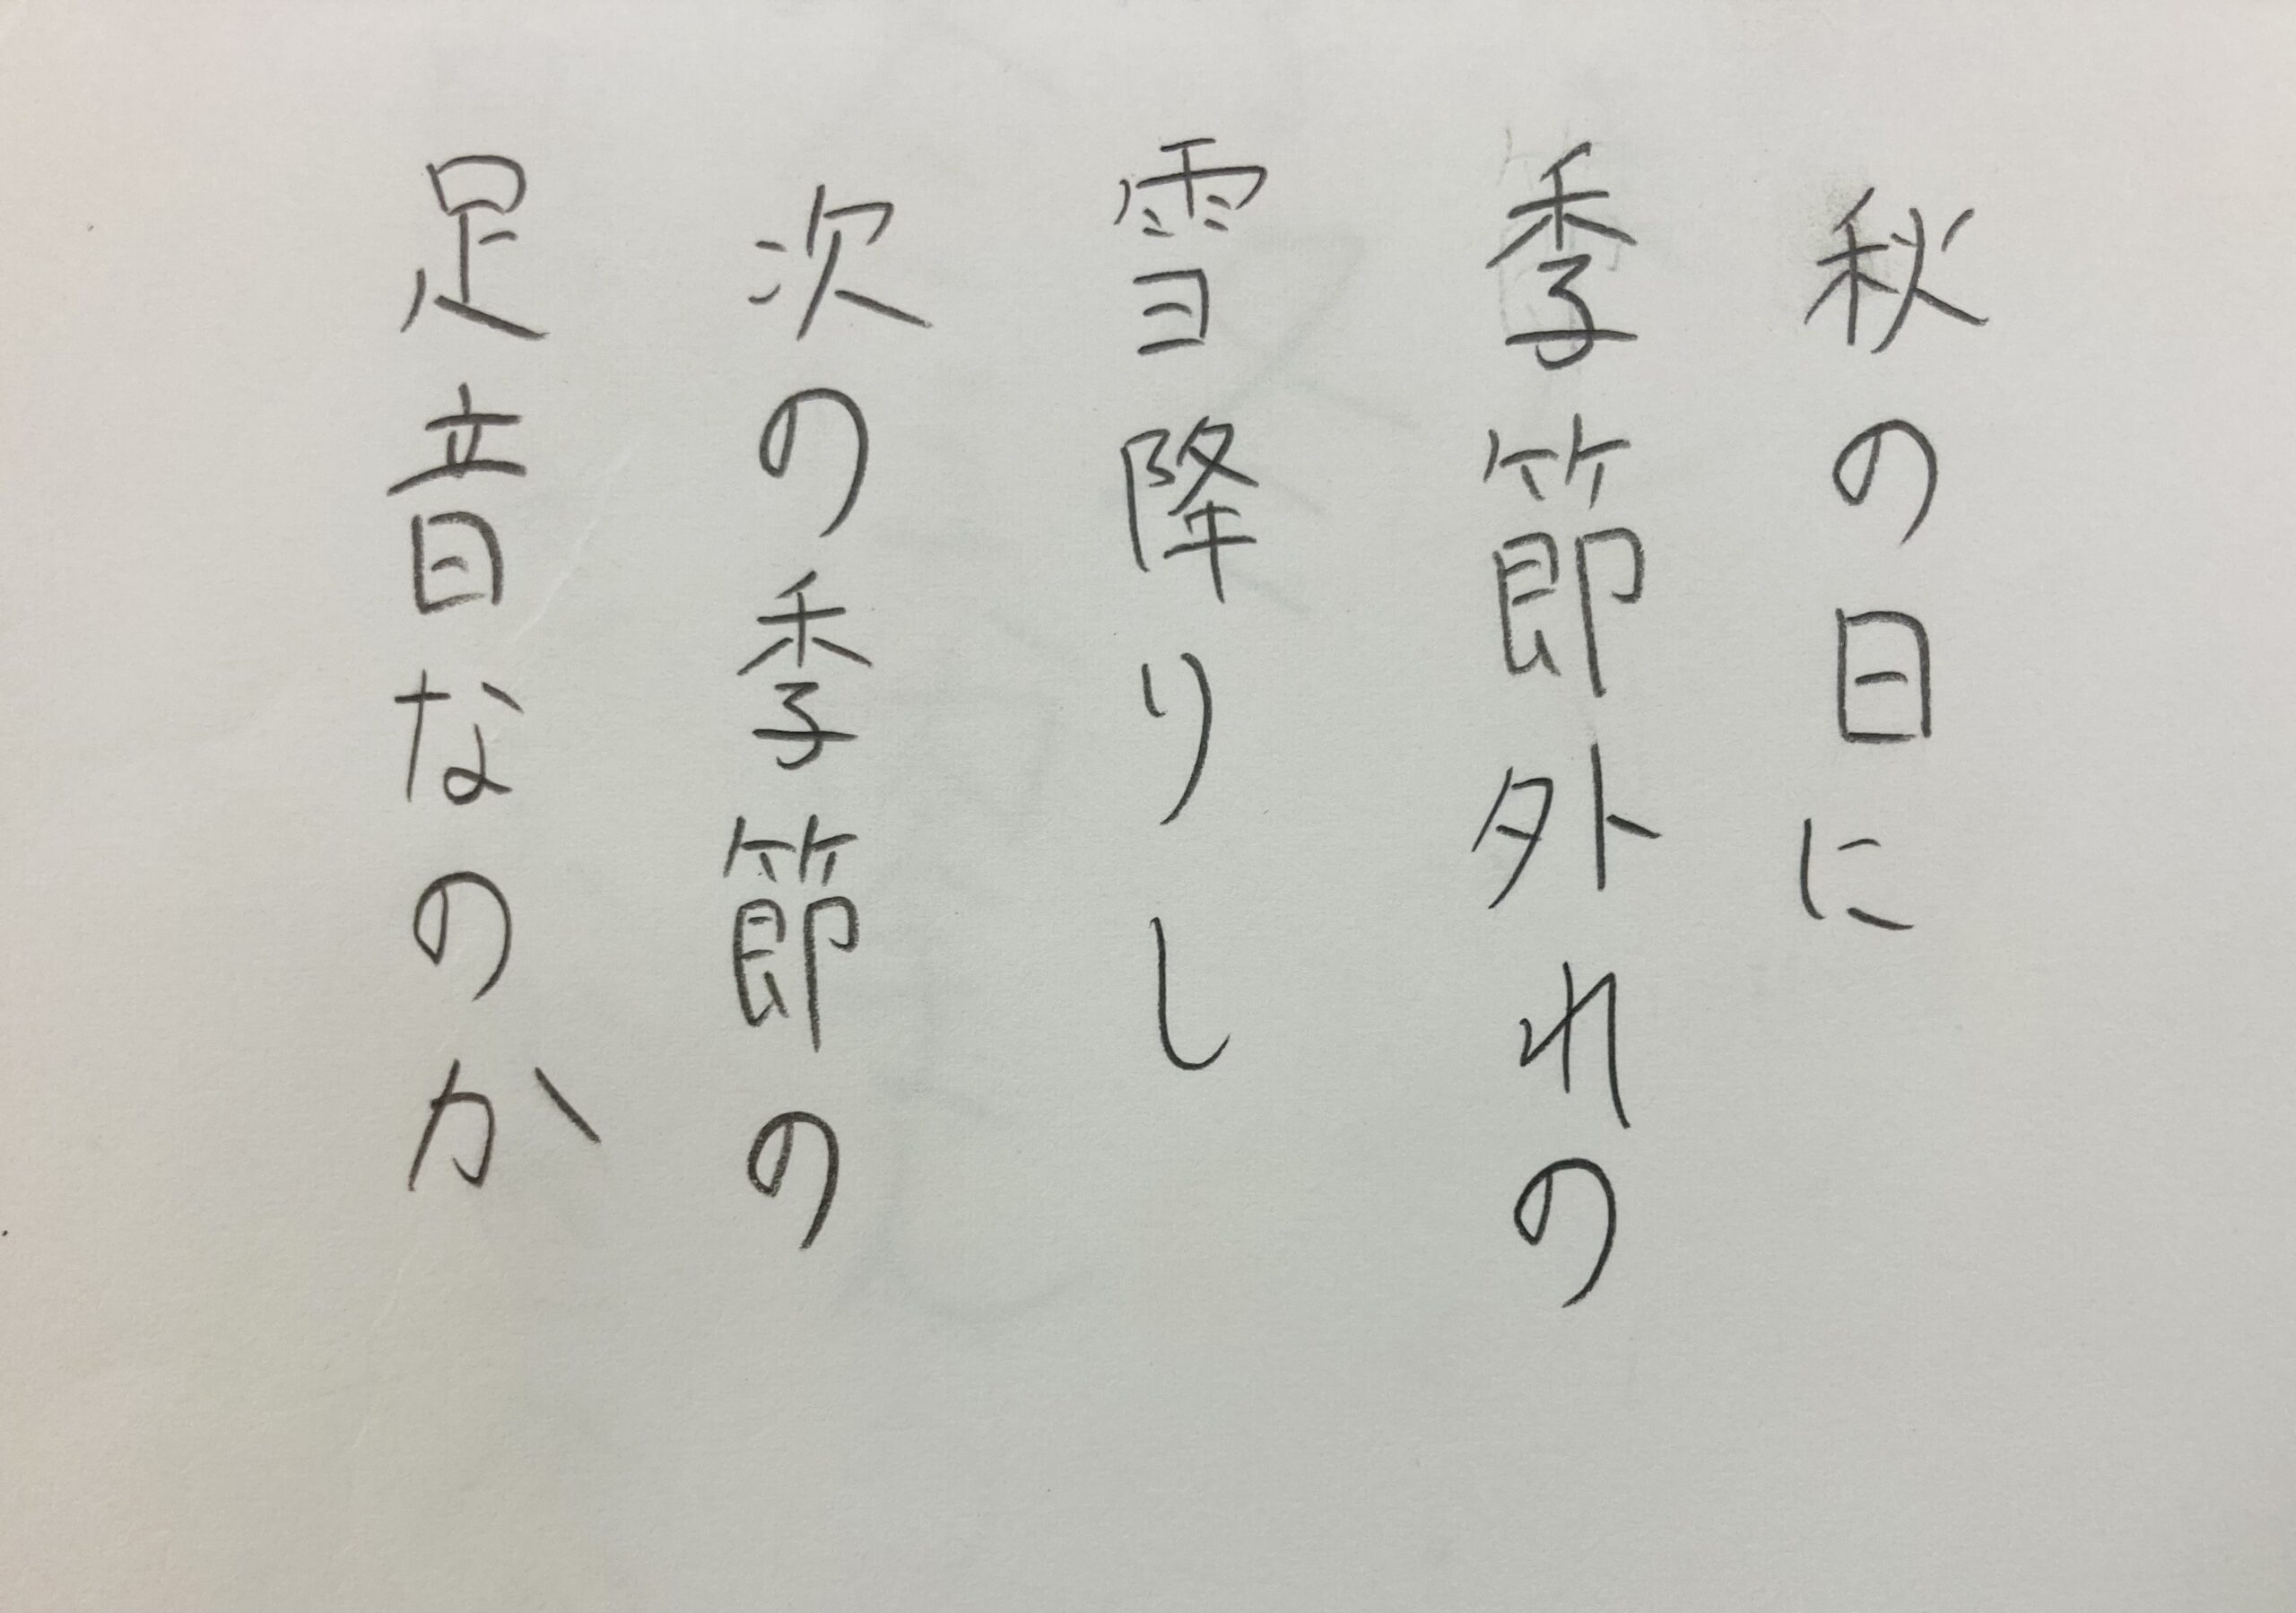 秋の日に
季節外れの
雪降りし
次の季節の
足音なのか